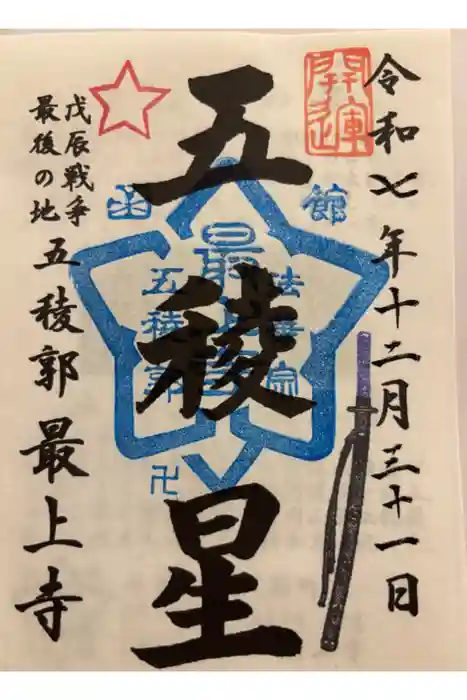 開運
令和七年十二月三十一日
五稜星
函館
法華宗
最上寺
五稜郭
卍
戊辰戦争
最後の地
五稜郭 最上寺